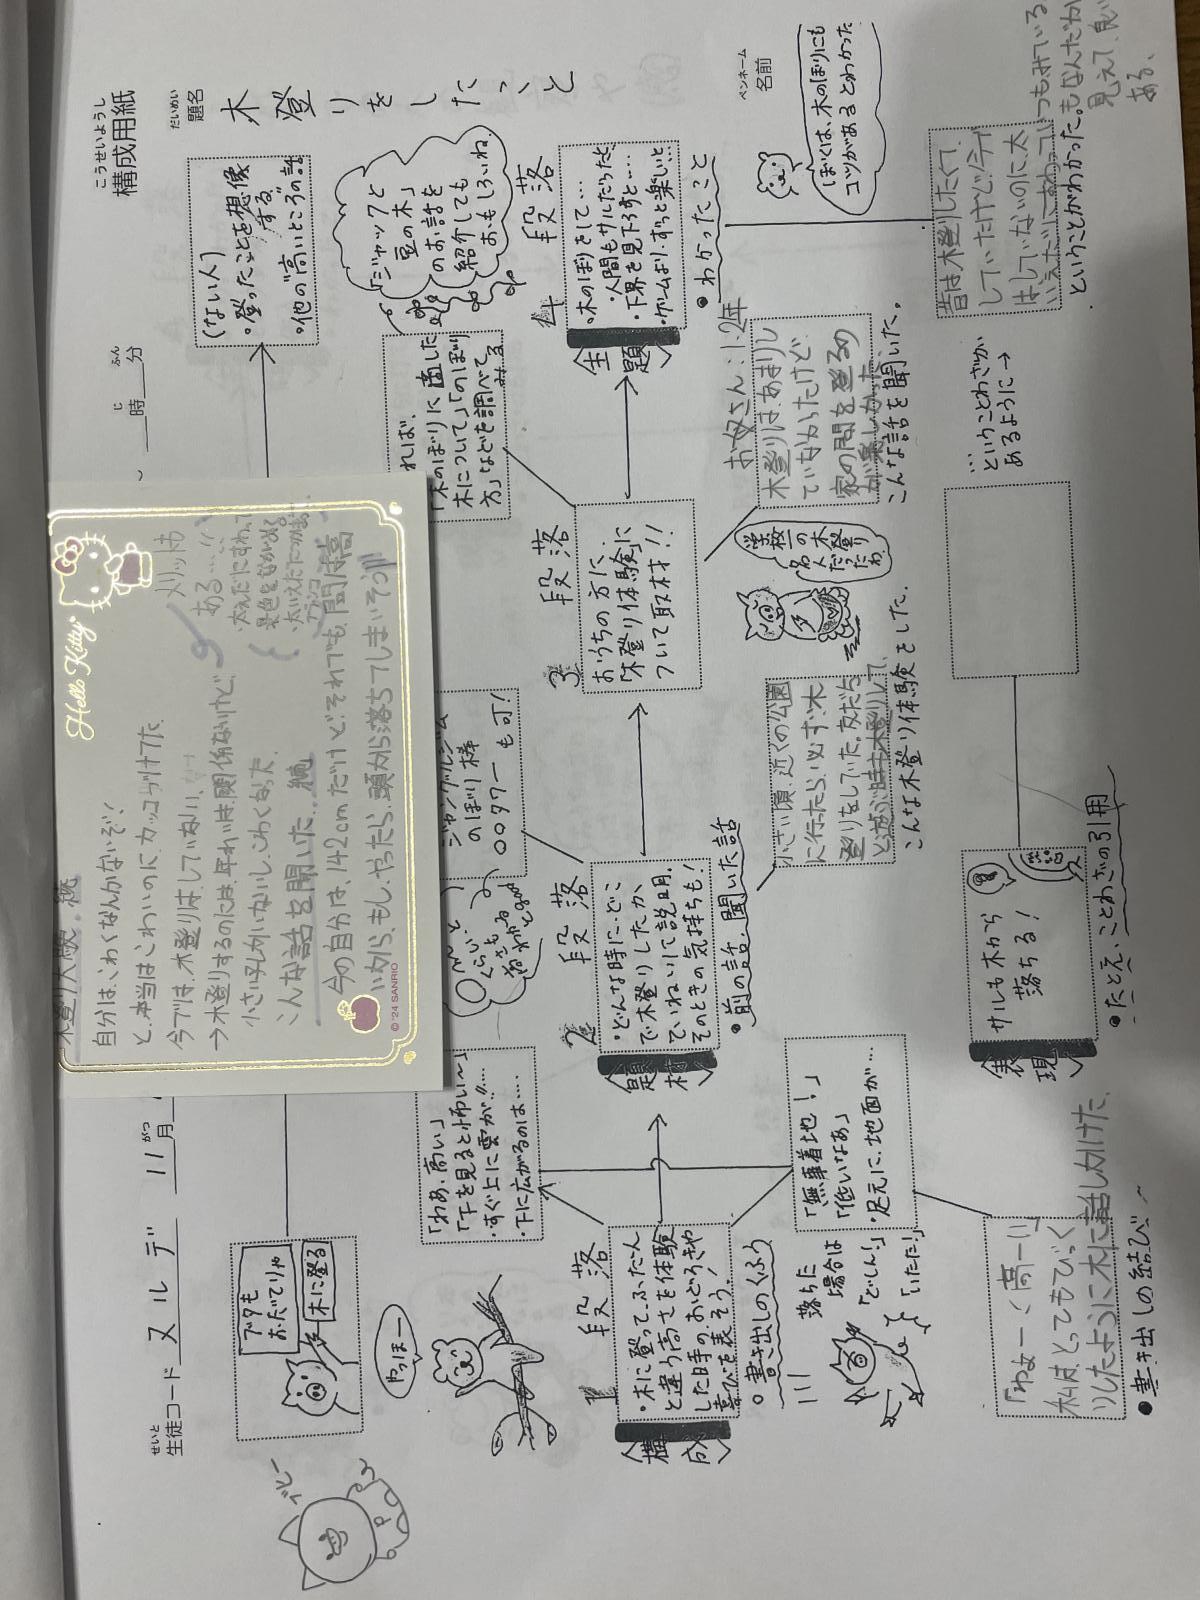 こうせいようし
構成用紙
だいめい
題名
木登りをしたこと
ペンネーム
名前
せいと
生徒コード ヌルデ 11
がつ
月
じ
時
ふん
分
ブタも
おだてりゃ
木に登る
(ない人)
・登ったことを想像
する
・他の"高いところの話
「ジャックと
豆の木」
のお話を
紹介しても
おもしろいね。
やっほー
「わあ、高い」
「下を見ると怖い〜」
・すぐ上に雲が!!…
・下に広がるのは…
ジャングルジム
のぼり棒
〇〇タワー も可!
れば、
「木のぼりに適した
木について」「のぼり
方」などを調べて
みる
1 段落
構成
・木に登って、ふだん
と違う高さを体験
した時の、おどろきや
喜びを表そう!
・書き出しのくふう
2 段落
題材
・どんな時に、どこ
で木登りしたか、
ていねいに説明。
そのときの気持ちも!
・前の話、聞いた話
3 段落
おうちの方に、
「木登り体験」に
ついて取材!!
4 段落
主題
・木のぼりをして…
・人間もサルだったと
・下界を見下ろすと…
・ゲームより、ずっと楽しいと
・わかったこと
ぼくは、木のぼりにも
コツがあるとわかった
落ちた
場合は
「どしん!」
「いたた!」
「無事着地!」
「低いなあ」
・足元に、地面が…
小さい頃、近くの公園
に行ったら、必ず、木
登りをしていた。友だち
と遊ぶ時も木登りして、
こんな木登り体験をした。
学校一の
木登り
名人
だったわ
お母さん:1.2年
木登りは、あまりし
ていなかったけど、
家の間を登るの
が楽しかった、
こんな話を聞いた。
昔は木登りしたくて、
していたけど、今は
はしていないのに、太
ということがわかった。
「わぁー〈高ーい」
私は、とってもびっく
りしたように木に話しかけた、
・書き出しの結び〜
表現
サルも木から
落ちる!
・たとえ、ことわざの引用
…ということわざが
あるように→
木登り体験。続
自分は、こわくなんかないぞ!
と、本当はこわいのに、カッコつけてた
今では、木登りはしていない、
→木登りするのには、年れいは、関係ないけど、
小さい子しかいないし、こわくなった。
こんな話を聞いた。続
今の自分は、142cmだけど、それでも、間は高
いから、もし、やったら、頭から落ちてしまいそう!!
メリットは
ある…!!
景色をながめる
Hello Kitty
© '24 SANRIO